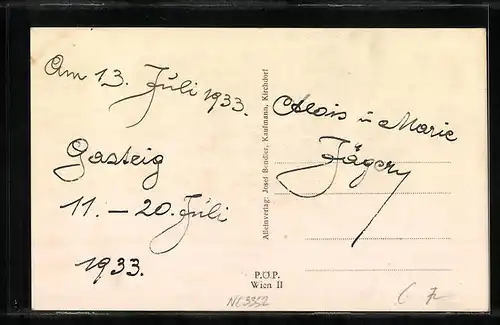 Am 13. Juli 1933.
Gasteig
11. – 20. Juli
1933.
Alleinverlag: Josef Bendler, Kaufmann, Kirchdorf
Alois u Marie
P.Ö.P.
Wien II
NC3352